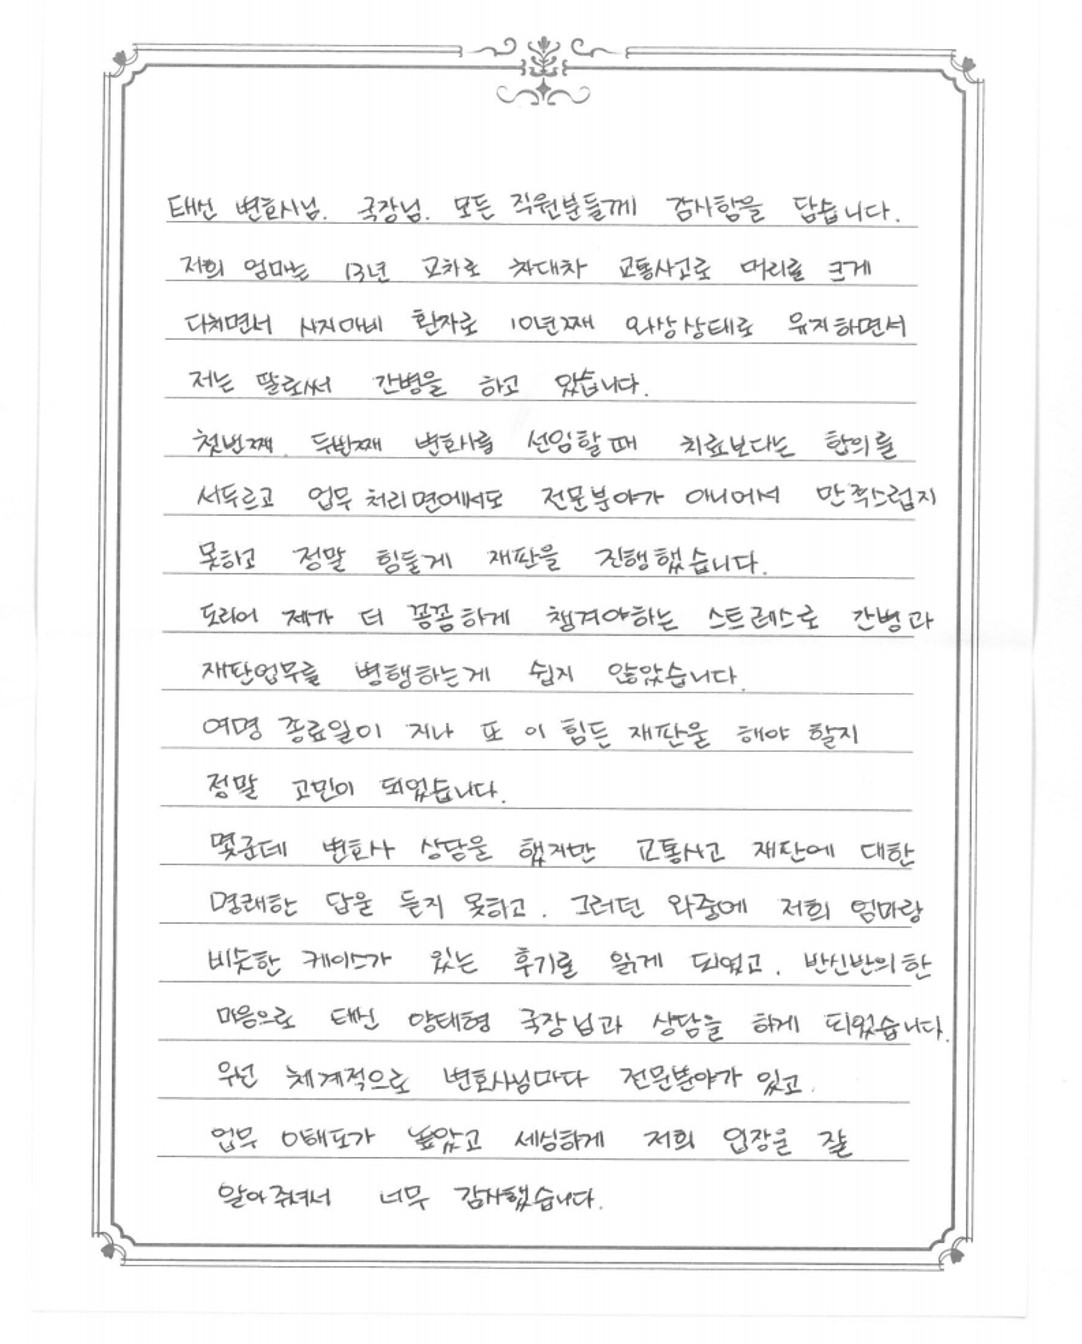 태신 변호사님. 국장님. 모든 직원분들께 감사함을 담습니다.
저희 엄마는 13년 교차로 차대차 교통사고로 머리를 크게
다치면서 사지마비 환자로 10년째 와상상태로 유지하면서
저는 딸로써 간병을 하고 있습니다.
첫번째. 두번째 변호사를 선임할때 치료보다는 합의를
서두르고 업무 처리면에서도 전문분야가 아니어서 만족스럽지
못하고 정말 힘들게 재판을 진행했습니다.
도리어 제가 더 꼼꼼하게 챙겨야하는 스트레스로 간병과
재판업무를 병행하는게 쉽지 않았습니다.
여명 종료일이 지나 또 이 힘든 재판을 해야 할지
정말 고민이 되었습니다.
몇군데 변호사 상담을 했지만 교통사고 재판에 대한
명쾌한 답을 듣지 못하고. 그러던 와중에 저희 엄마랑
비슷한 케이스가 있는 후기를 읽게 되었고. 반신반의한
마음으로 태신 양태형 국장님과 상담을 하게 되었습니다.
우선 체계적으로 변호사님마다 전문분야가 있고.
업무 이해도가 높았고 세심하게 저희 입장을 잘
알아주셔서 너무 감사했습니다.